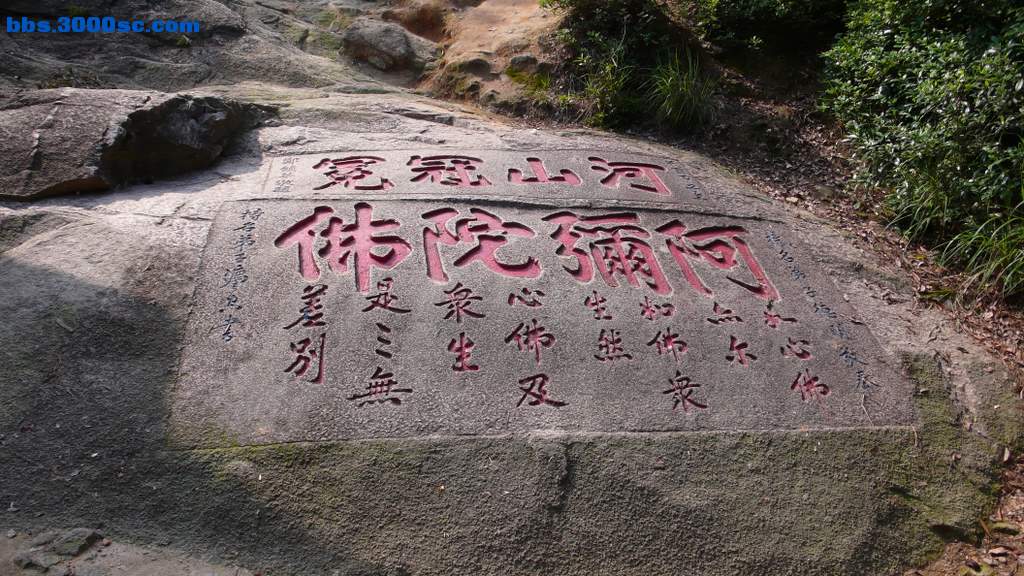 bbs.3000sc.com
河山冠冕
阿彌陀佛
如心佛
亦尔
如佛衆
生然
心佛及
衆生
是三無
差別